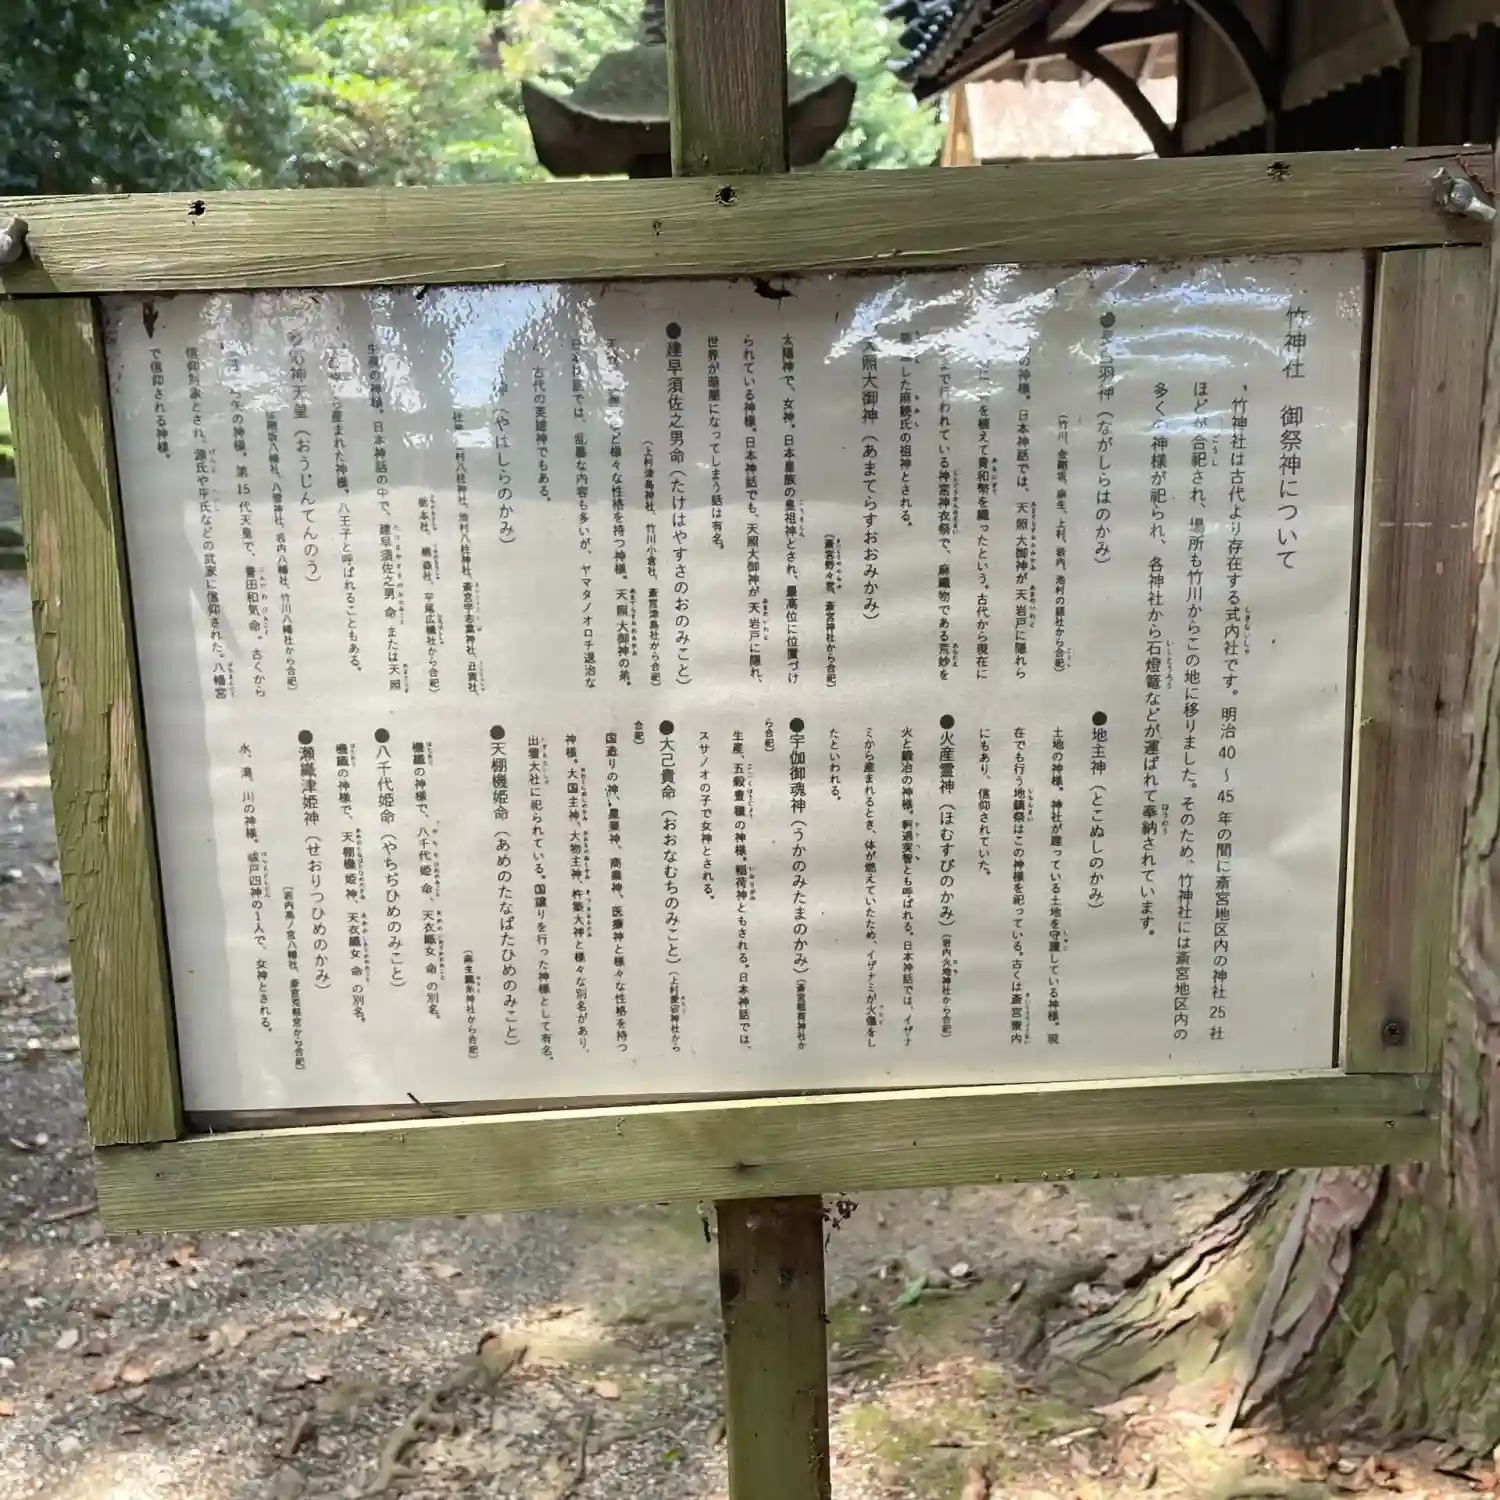 竹神社 御祭神について
竹神社は古代より存在する式内社です。明治40～45年の間に斎宮地区内の神社25社
ほどが合祀され、場所も竹川からこの地に移りました。そのため、竹神社には斎宮地区内の
多くの神様が祀られ、各神社から石燈籠などが運ばれて奉納されています。
●長白羽神（ながしらはのかみ）
（竹川、金剛坂、麻生、上村、岩内、池村の 社から合祀）
の神様。日本神話では、天照大御神が天岩戸に隠れら
を植えて青和幣を織ったという。古代から現在に
まで行われている神宮神衣祭で、麻織物である荒妙を
した麻績氏の祖神とされる。
（斎宮野々宮、斎宮神社から合祀）
天照大御神（あまてらすおおみかみ）
太陽神で、女神。日本皇族の皇祖神とされ、最高位に位置づけ
られている神様。日本神話でも、天照大御神が天岩戸に隠れ、
世界が暗闇になってしまう話は有名。
●建早須佐之男命（たけはやすさのおのみこと）
（上村津島神社、竹川小倉社、斎宮津島社から合祀）
など様々な性格を持つ神様。天照大御神の弟。
日本神話では、乱暴な内容も多いが、ヤマタノオロチ退治な
古代の英雄神でもある。
（やはしらのかみ）
村八柱神社、池村八柱神社、斎宮宇志葉神社、丑寅社、
社、橋森社、平尾広幡社から合祀）
生産の神様。日本神話の中で、建早須佐之男命または天照
から産まれた神様。八王子と呼ばれることもある。
神天皇（おうじんてんのう）
剛坂八幡社、八雲神社、岩内八幡社、竹川八幡社から合祀）
矢の神様。第15代天皇で、誉田和気命。古くから
信仰対象とされ、源氏や平氏などの武家に信仰された。八幡宮
で信仰される神様。
●地主神（とこぬしのかみ）
土地の神様。神社が建っている土地を守護している神様。現
在でも行う地鎮祭はこの神様を祀っている。古くは斎宮寮内
にもあり、信仰されていた。
●火産霊神（ほむすびのかみ）（岩内火地神社から合祀）
火と鍛冶の神様。軻遇突智とも呼ばれる。日本神話では、イザナ
ミから産まれるとき、体が燃えていたため、イザナミが火傷をし
たといわれる。
●宇伽御魂神（うかのみたまのかみ）（斎宮稲荷神社か
ら合祀）
生産、五穀豊穣の神様。稲荷神ともされる。日本神話では、
スサノオの子で女神とされる。
●大己貴命（おおなむちのみこと）（上村愛宕神社から
合祀）
国造りの神、農業神、商業神、医療神と様々な性格を持つ
神様。大国主神、大物主神、杵築大神と様々な別名があり、
出雲大社に祀られている。国譲りを行った神様として有名。
●天棚機姫命（あめのたなばたひめのみこと）
（麻生織糸神社から合祀）
機織の神様で、八千代姫命、天衣織女命の別名。
●八千代姫命（やちぢひめのみこと）
機織の神様で、天棚機姫神、天衣織女命の別名。
●瀬織津姫神（せおりつひめのかみ）
（岩内高ノ宮八幡社、斎宮 祭宮から合祀）
水、滝、川の神様。祓戸四神の1人で、女神とされる。